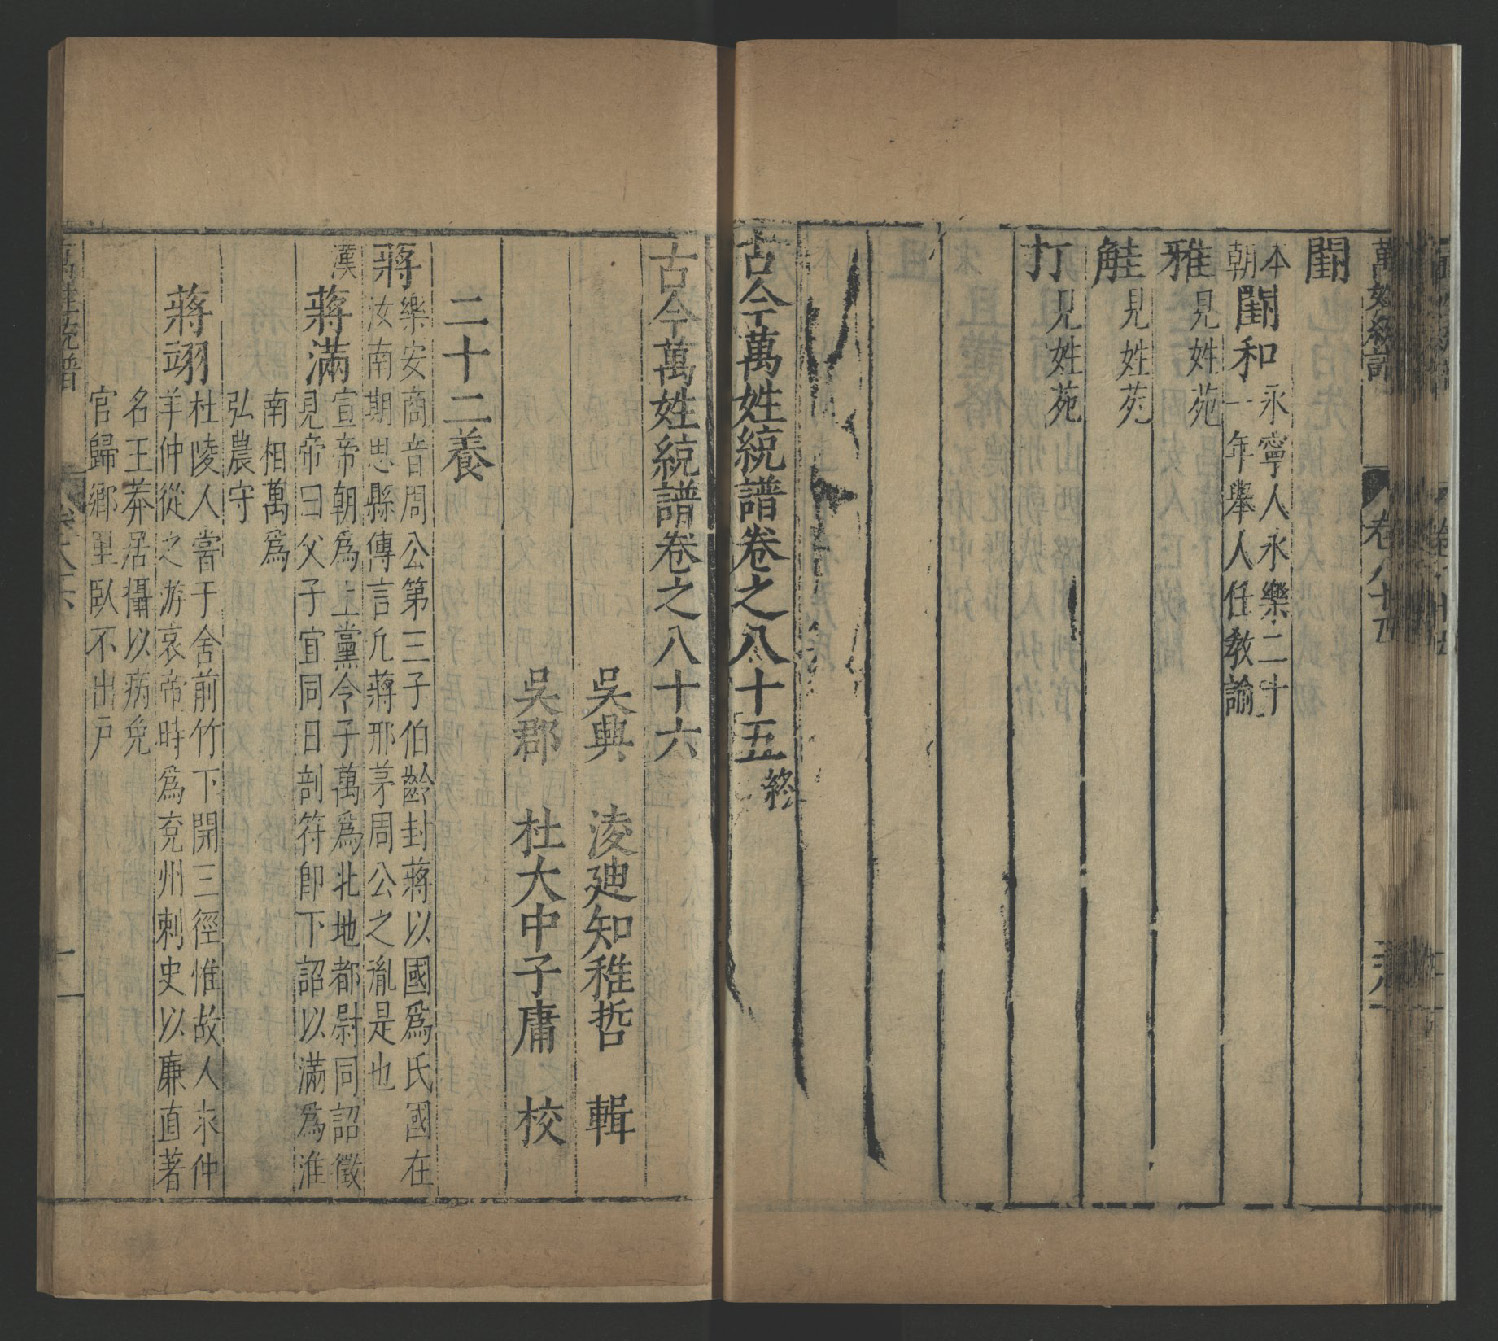 萬姓統譜
卷八十五
閏
本朝
閏和
永寧人永樂二十
一年舉人任敎諭
雅
見姓苑
觟
見姓苑
打
見姓苑
古今萬姓統譜卷之八十五終
古今萬姓統譜卷之八十六
吳興 淩迪知稚哲 輯
吳郡 杜大中子庸 校
二十二養
蔣
樂安商音周公第三子伯齡封蔣以國爲氏國在
汝南期思縣傳言凡蔣邢茅周公之胤是也
漢
蔣滿
宣帝朝爲上黨令子萬爲北地都尉同詔徵
見帝曰父子宜同日剖符卽下詔以滿爲淮
南相萬爲
弘農守
蔣翊
杜陵人嘗于舍前竹下開三徑惟故人求仲
羊仲從之游哀帝時爲兗州刺史以廉直著
名王莽居攝以病免
官歸鄉里臥不出戶
萬姓統譜
卷八十六
一